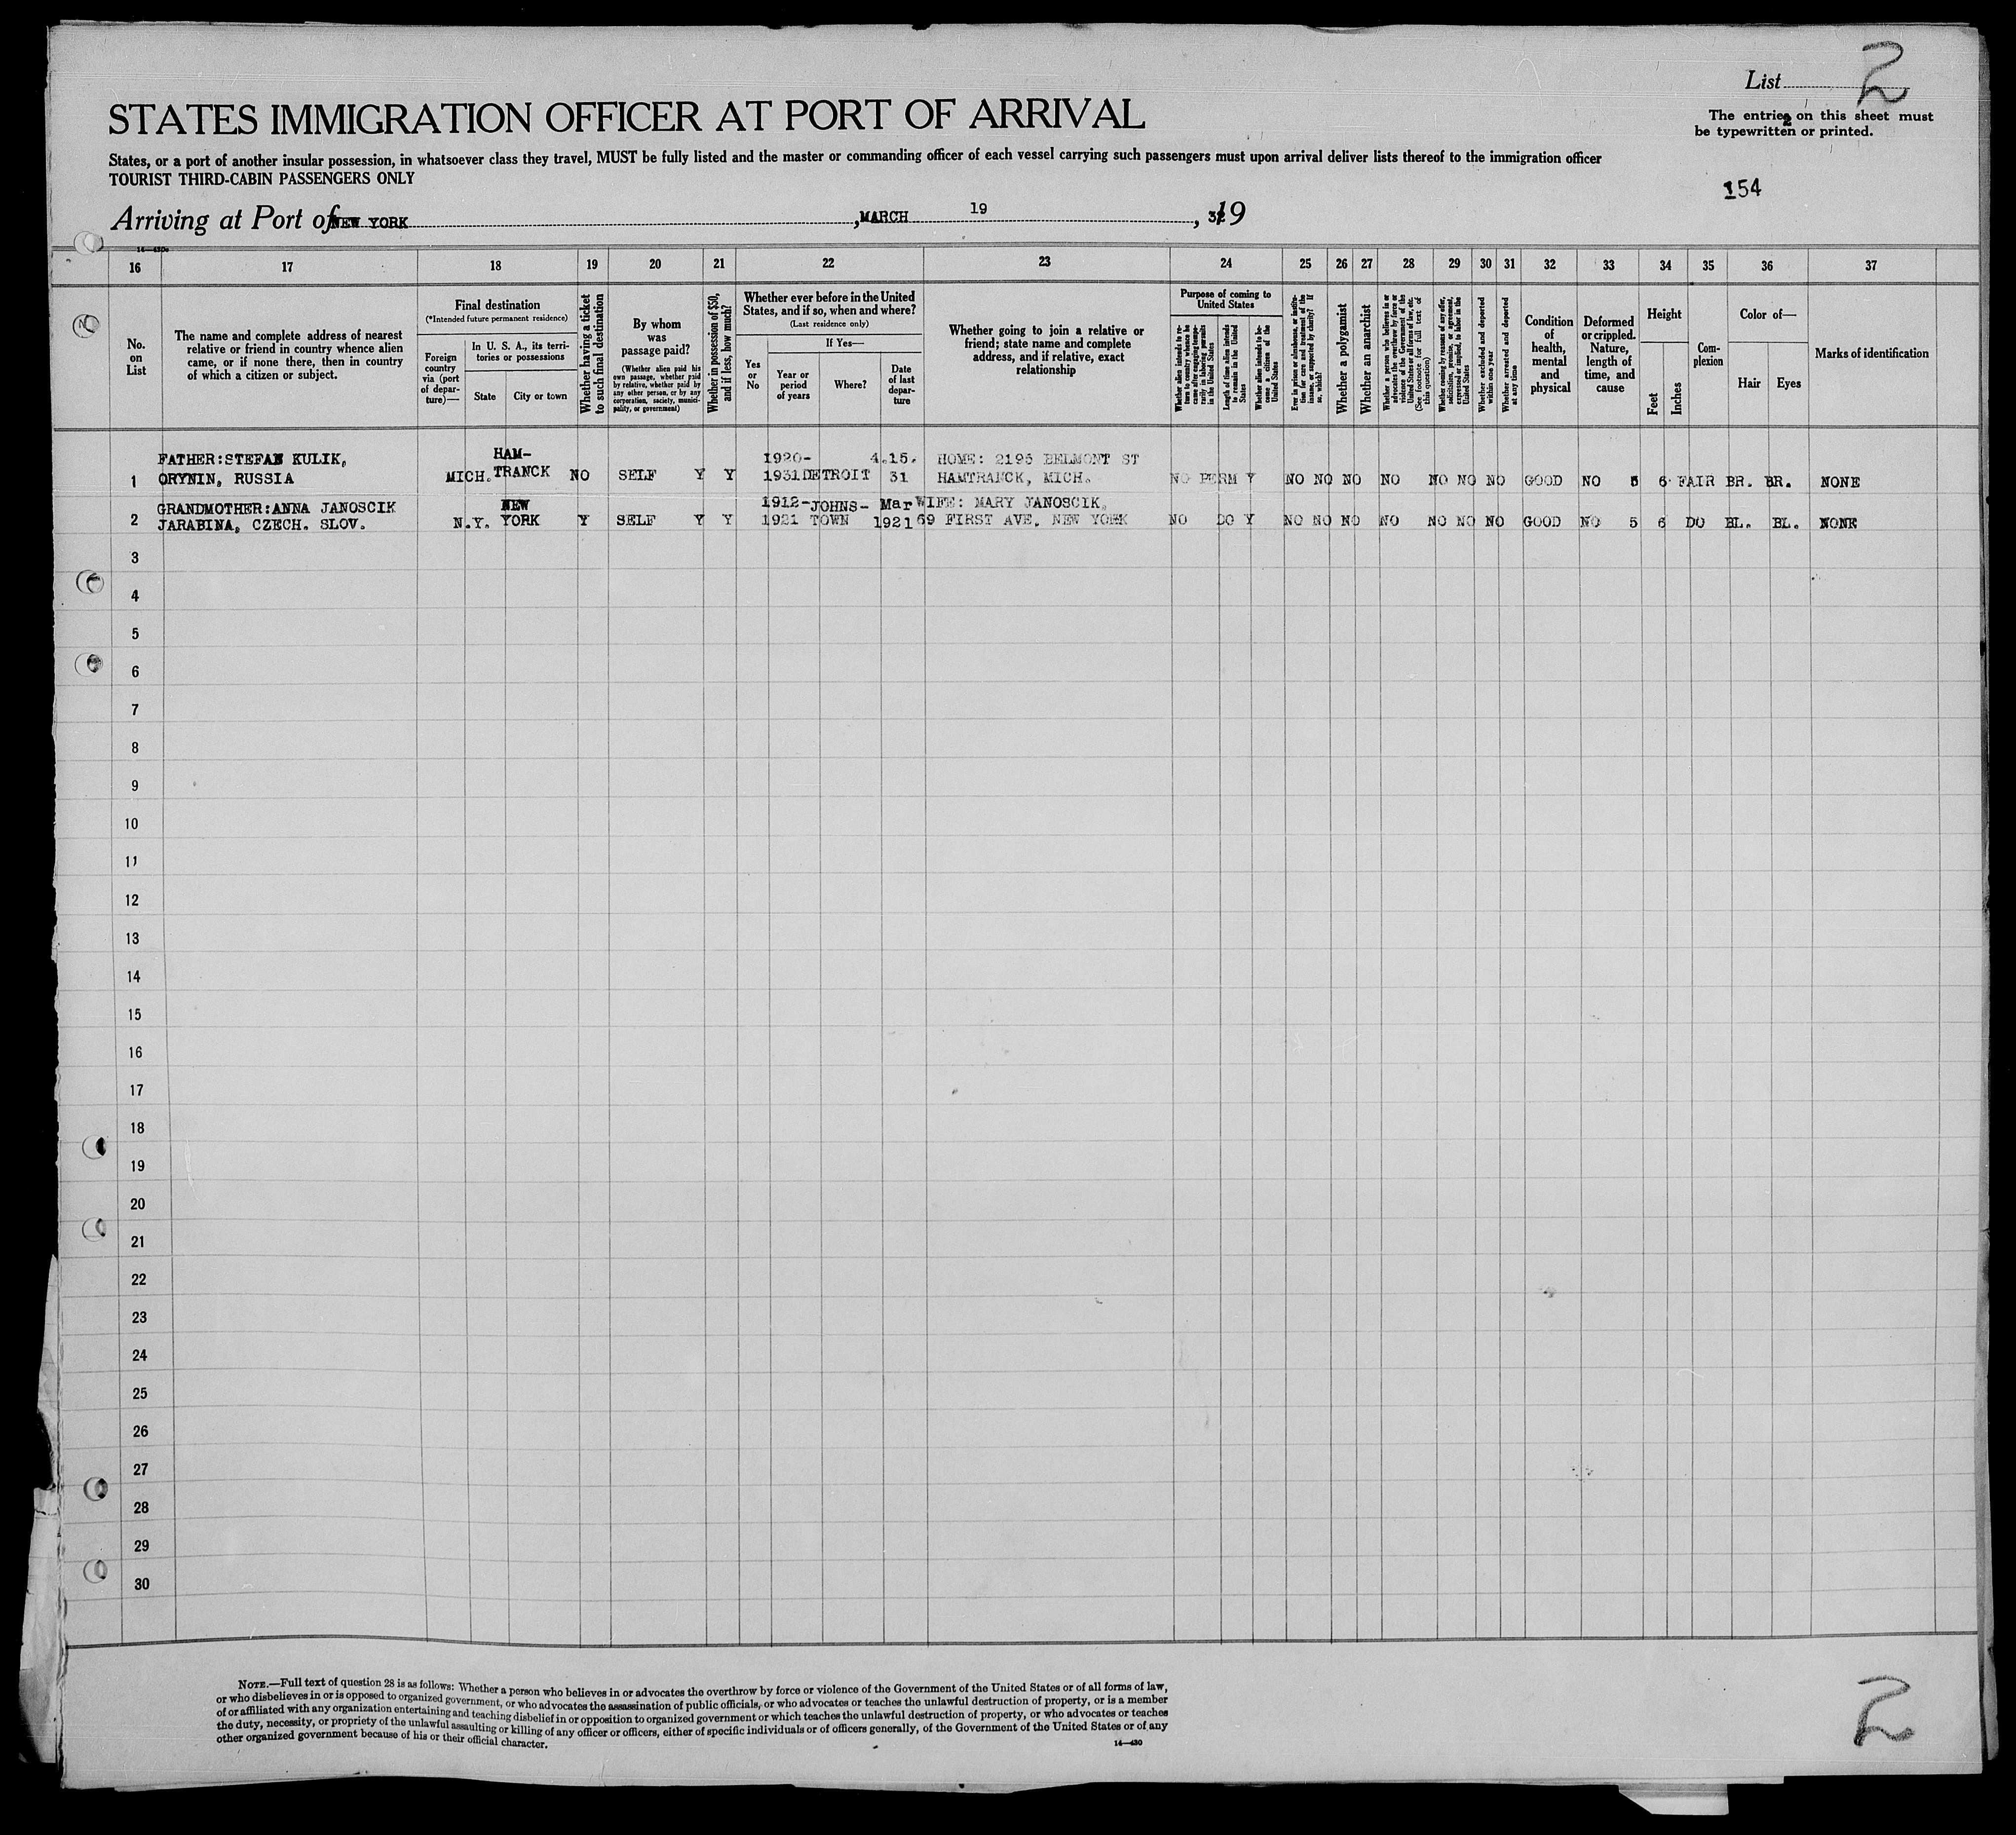 List 2
STATES IMMIGRATION OFFICER AT PORT OF ARRIVAL
The entries on this sheet must
be typewritten or printed.
States, or a port of another insular possession, in whatsoever class they travel, MUST be fully listed and the master or commanding officer of each vessel carrying such passengers must upon arrival deliver lists thereof to the immigration officer
TOURIST THIRD-CABIN PASSENGERS ONLY
154
Arriving at Port of NEW YORK, MARCH 19, 19
16 17 18 19 20 21 22 23 24 25 26 27 28 29 30 31 32 33 34 35 36 37
No.
on
List
The name and complete address of nearest
relative or friend in country whence alien
came, or if none there, then in country
of which a citizen or subject.
Final destination
(*Intended future permanent residence)
Foreign
country
via (port
of depar-
ture)—
In U. S. A., its terri-
tories or possessions
State
City or town
Whether having a ticket
to such final destination
By whom
was
passage paid?
(Whether alien paid his
own passage, whether paid
by relative, whether paid by
any other person, or by any
corporation, society, munici-
pality, or government)
Whether in possession of $50,
and if less, how much?
Whether ever before in the United
States, and if so, when and where?
(Last residence only)
Yes
or
No
If Yes—
Year or
period
of years
Where?
Date
of last
depar-
ture
Whether going to join a relative or
friend; state name and complete
address, and if relative, exact
relationship
Purpose of coming to
United States
Whether alien intends to re-
turn to country whence he
came after engaging tempo-
rarily in laboring pursuits
in the United States
Length of time alien intends
to remain in the United
States
Whether alien intends to be-
come a citizen of the
United States
Ever in prison or almshouse, or institu-
tion for care and treatment of the
insane, or supported by charity? If
so, which?
Whether a polygamist
Whether an anarchist
Whether a person who believes in or
advocates the overthrow by force or
violence of the Government of the
United States or all forms of law, etc.
(See footnote for full text of
this question)
Whether coming by reason of any offer,
solicitation, promise, or agreement,
expressed or implied, to labor in the
United States
Whether excluded and deported
within one year
Whether arrested and deported
at any time
Condition
of
health,
mental
and
physical
Deformed
or crippled.
Nature,
length of
time, and
cause
Height
Feet
Inches
Com-
plexion
Color of—
Hair
Eyes
Marks of identification
FATHER:STEFAN KULIK, HAM- 1920- 4.15. HOME: 2195 BELMONT ST
1 ORYNIN, RUSSIA MICH. TRANCK NO SELF Y Y 1931 DETROIT 31 HAMTRANCK, MICH. NO PERM Y NO NO NO NO NO NO NO GOOD NO 5 6 FAIR BR. BR. NONE
GRANDMOTHER:ANNA JANOSCIK NEW 1912- JOHNS- Mar WIFE: MARY JANOSCIK,
2 JARABINA, CZECH. SLOV. N.Y. YORK Y SELF Y Y 1921 TOWN 1921 69 FIRST AVE, NEW YORK NO DO Y NO NO NO NO NO NO NO GOOD NO 5 6 DO BL. BL. NONE
3
4
5
6
7
8
9
10
11
12
13
14
15
16
17
18
19
20
21
22
23
24
25
26
27
28
29
30
NOTE.—Full text of question 28 is as follows: Whether a person who believes in or advocates the overthrow by force or violence of the Government of the United States or of all forms of law,
or who disbelieves in or is opposed to organized government, or who advocates the assassination of public officials, or who advocates or teaches the unlawful destruction of property, or is a member
of or affiliated with any organization entertaining and teaching disbelief in or opposition to organized government or which teaches the unlawful destruction of property, or who advocates or teaches
the duty, necessity, or propriety of the unlawful assaulting or killing of any officer or officers, either of specific individuals or of officers generally, of the Government of the United States or of any
other organized government because of his or their official character.
14—430
2